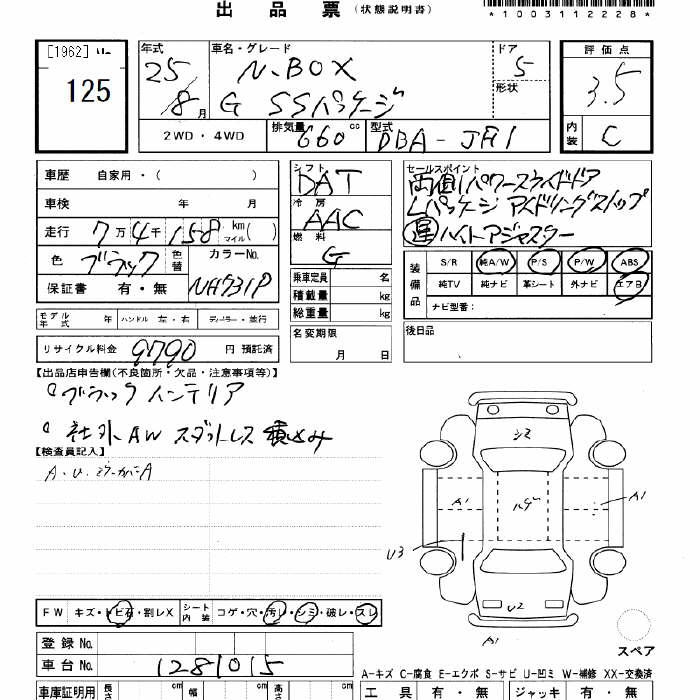 出品票 (状態説明書)
*1003112228*
[1962]
125
年式
25
8月
車名・グレード
N-BOX
G SSパッケージ
ドア
5
形状
評価点
3.5
内装
C
2WD・4WD
排気量
660 cc
型式
DBA-JF1
車歴 自家用・( )
車検 年 月
走行 7万4千158 km マイル( )
色 ブラック 色替 カラーNo. NH731P
保証書 有・無
シフト
DAT
冷房
AAC
燃料
G
セールスポイント
両側パワースライドドア
Lパッケージ アイドリングストップ
運ハイトアジャスター
乗車定員 名
積載量 kg
総重量 kg
装備品
S/R 純A/W P/S P/W ABS
純TV 純ナビ 革シート 外ナビ エアB
ナビ型番:
モデル年式 年 ハンドル 左・右 ディーラー・並行
名変期限
月 日
後日品
リサイクル料金 9790 円 預託済
【出品店申告欄(不良箇所・欠品・注意事項等)】
ブラックインテリア
社外AW スタットレス積込み
【検査員記入】
A.U.ミラーカバーA
シミ
A1
ハゲ
A1
U3
U2
A1
スペア
FW キズ・トビ石・割レX シート内装 コゲ・穴・汚レ・シミ・破レ・スレ
登録No.
車台No. 1281015
A-キズ C-腐食 E-エクボ S-サビ U-凹ミ W-補修 XX-交換済
車庫証明用 長さ cm 幅 cm 高さ cm
工具 有・無 ジャッキ 有・無